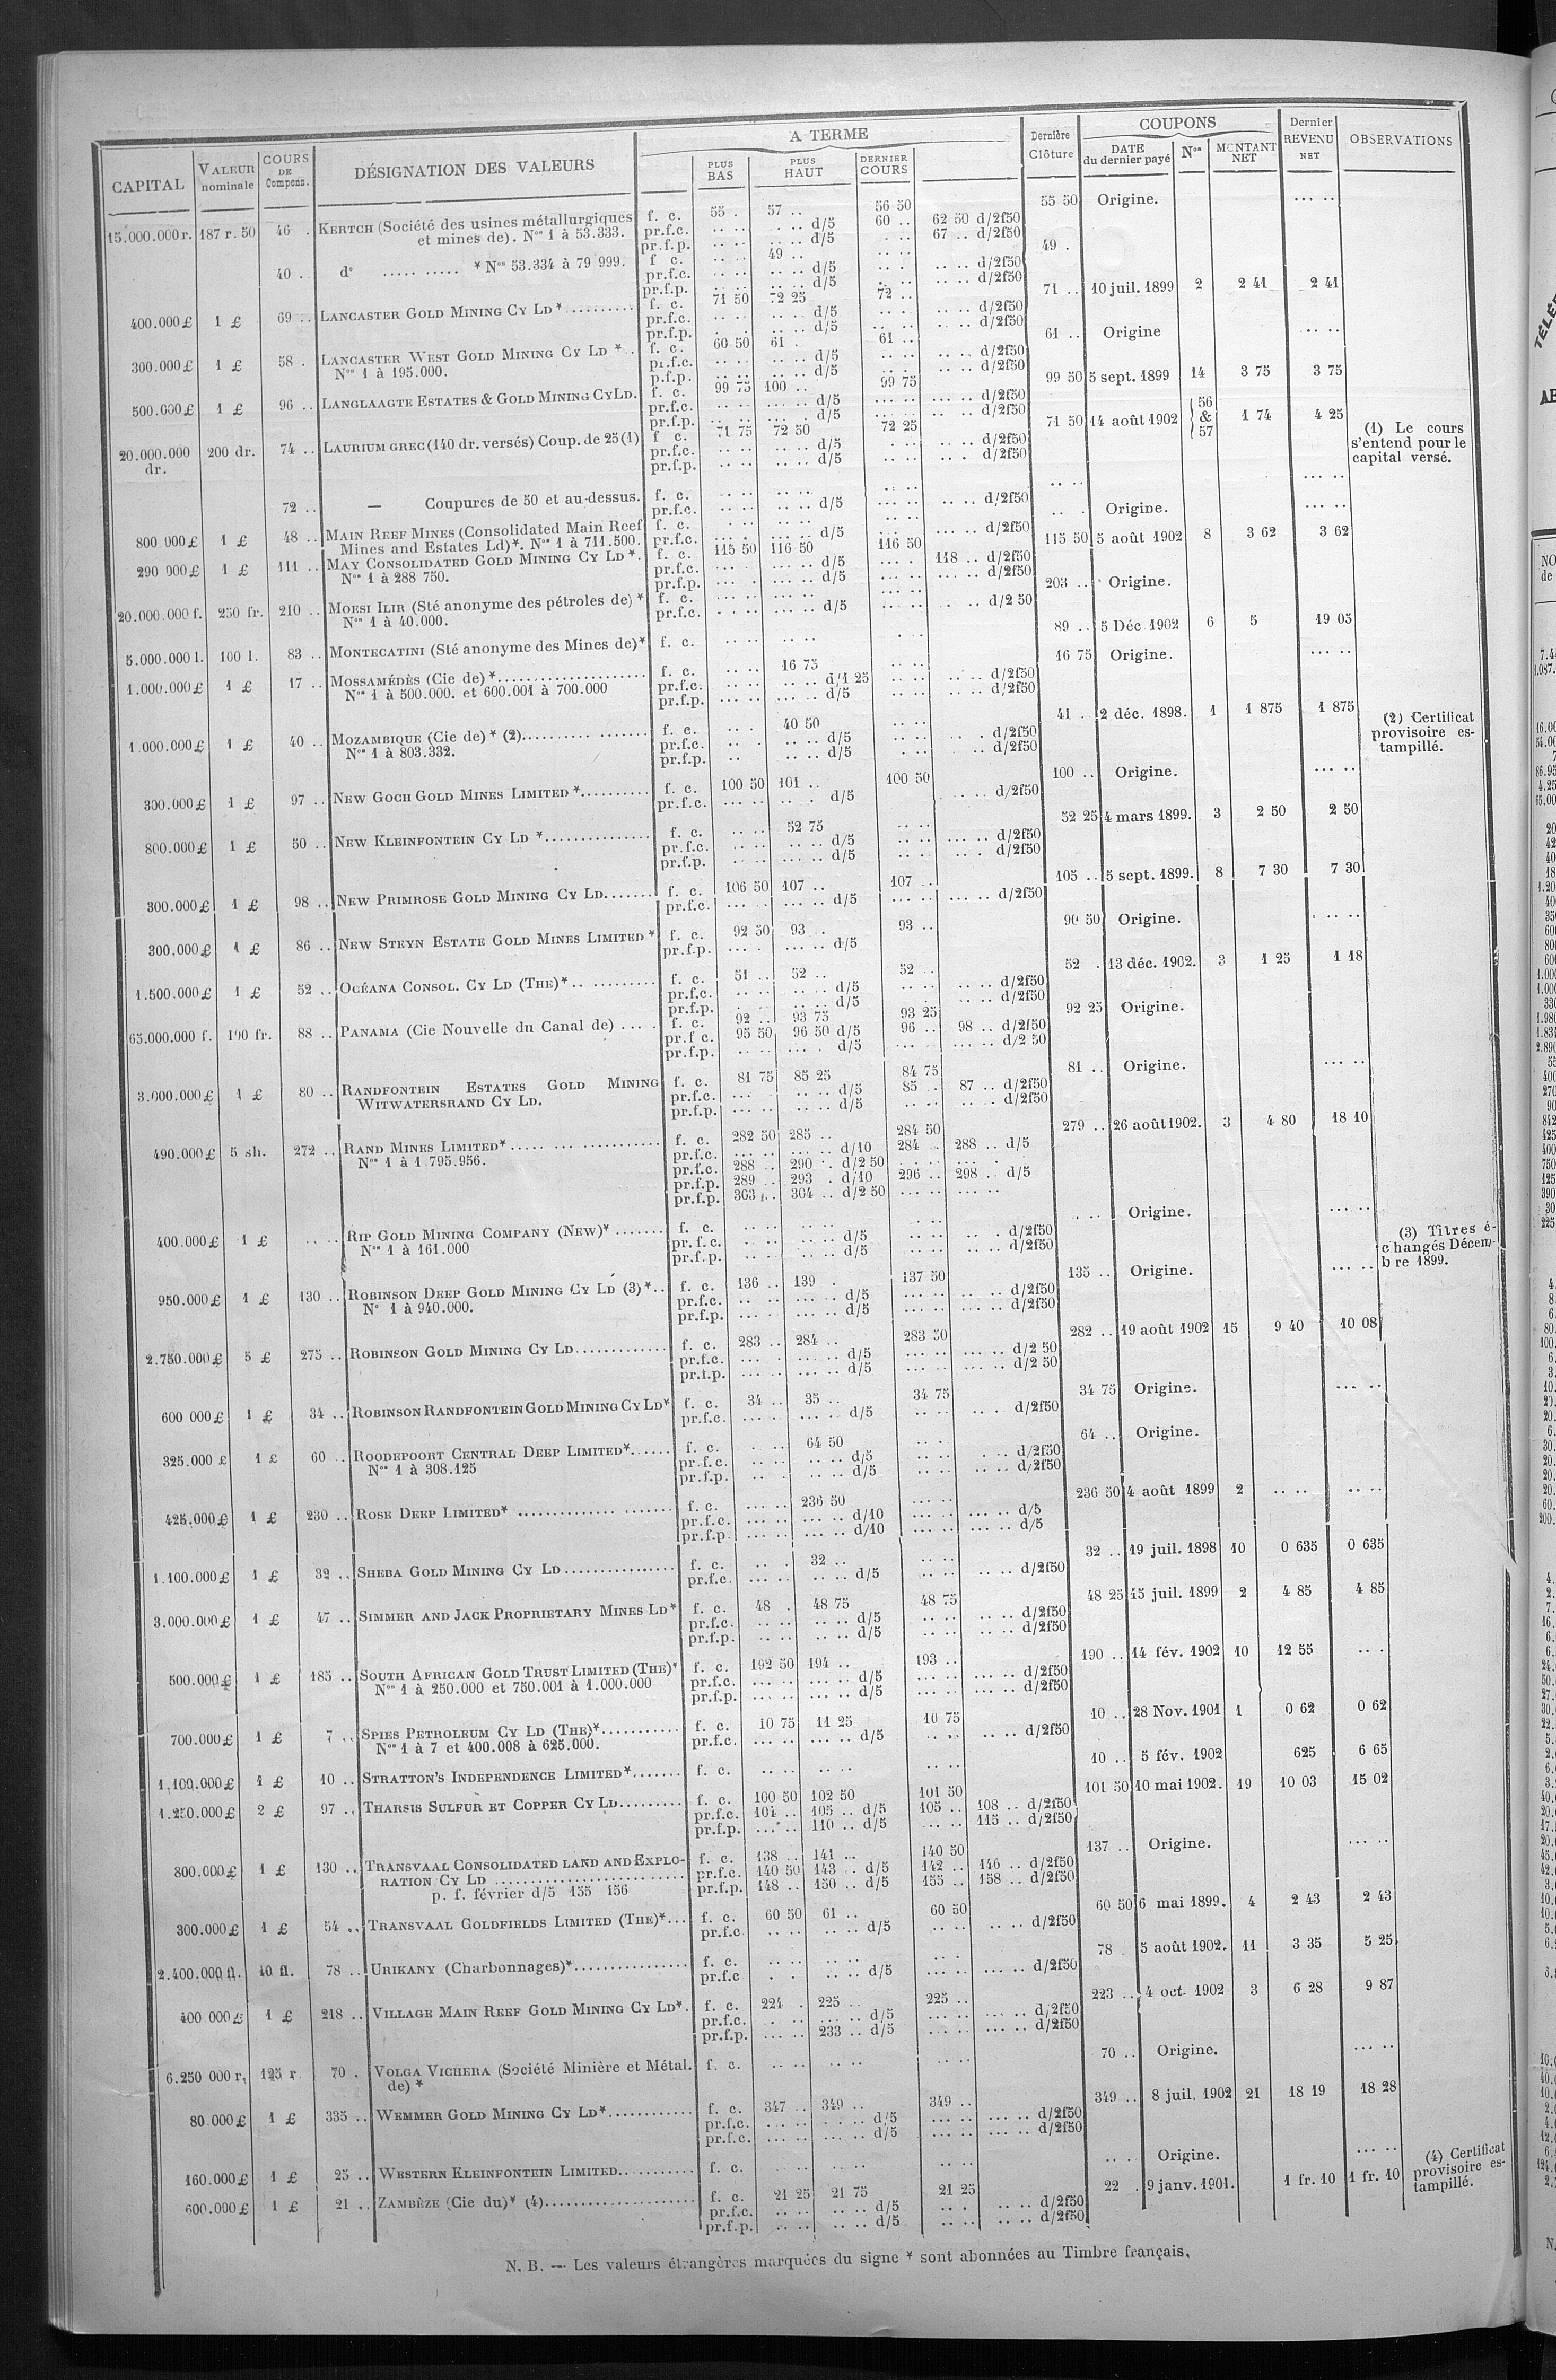 CAPITAL VALEUR nominale COURS DE Compens. DÉSIGNATION DES VALEURS A TERME PLUS BAS PLUS HAUT DERNIER COURS Dernière Clôture COUPONS DATE du dernier payé Nos MONTANT NET Dernier REVENU NET OBSERVATIONS
15.000.000 r. 187 r. 50 46 . KERTCH (Société des usines métallurgiques f. c. 55 . 57 .. 56 50 55 50 Origine. ... ..
et mines de). Nos 1 à 53.333. pr.f.c. .. .. .. .. d/5 60 .. 62 50 d/2f50
pr.f.p. .. .. .. .. d/5 67 .. d/2f50
40 . do ..... ..... * Nos 53.334 à 79 999. f c. .. .. 49 .. .. .. 49 .
pr.f.c. .. .. .. .. d/5 .. .. .. .. d/2f50
pr.f.p. .. .. .. .. d/5 .. .. .. .. d/2f50
400.000 £ 1 £ 69 .. LANCASTER GOLD MINING CY LD * .......... f. c. 71 50 72 25 72 .. 71 .. 10 juil. 1899 2 2 41 2 41
pr.f.c. .. .. .. .. d/5 .. .. .. .. d/2f50
pr.f.p. .. .. .. .. d/5 .. .. .. .. d/2f50
300.000 £ 1 £ 58 . LANCASTER WEST GOLD MINING CY LD *.. f. c. 60 50 61 . 61 .. 61 .. Origine ... ..
Nos 1 à 195.000. pr.f.c. .. .. .. .. d/5 .. .. .. .. d/2f50
p.f.p. .. .. .. .. d/5 .. .. .. .. d/2f50
500.000 £ 1 £ 96 .. LANGLAAGTE ESTATES & GOLD MINING CY LD. f. c. 99 75 100 .. 99 75 99 50 5 sept. 1899 14 3 75 3 75
pr.f.c. .. .. ... .. d/5 ... .. ... .. d/2f50
pr.f.p. .. .. ... .. d/5 .. .. .. .. d/2f50
20.000.000 dr. 200 dr. 74 .. LAURIUM GREC (140 dr. versés) Coup. de 25 (1) f c. 71 75 72 50 72 25 71 50 14 août 1902 56 & 57 1 74 4 25 (1) Le cours s'entend pour le capital versé.
pr.f.c. .. .. .. .. d/5 .. .. .. .. d/2f50
pr.f.p. .. .. .. .. d/5 .. .. .. . d/2f50
72 .. — Coupures de 50 et au-dessus. f. c. .. .. .. .. .. .. .. .. ... ..
pr.f.c. .. .. .. .. d/5 ... .. .. .. d/2f50
800 000 £ 1 £ 48 .. MAIN REEF MINES (Consolidated Main Reef f. c. . .. .. .. .. .. .. . Origine. ... ..
Mines and Estates Ld)*. Nos 1 à 711.500. pr.f.c. ... . ... .. d/5 ... .. ... .. d/2f50
290 000 £ 1 £ 111 .. MAY CONSOLIDATED GOLD MINING CY LD *. f. c. 115 50 116 50 116 50 115 50 5 août 1902 8 3 62 3 62
Nos 1 à 288 750. pr.f.c. ... .. ... .. d/5 ... . 118 .. d/2f50
pr.f.p. ... . ... .. d/5 ... .. ... .. d/2f50
20.000.000 f. 250 fr. 210 .. MOESI ILIR (Sté anonyme des pétroles de) * f. c. ... .. ... .. ... .. 203 .. Origine.
Nos 1 à 40.000. pr.f.c. . .. .. ... .. d/5 ... .. . .. d/2 50
5.000.000 l. 100 l. 83 .. MONTECATINI (Sté anonyme des Mines de)* f. c. .. .. .. .. . .. 89 .. 5 Déc 1902 6 5 19 05
1.000.000 £ 1 £ 17 .. MOSSAMÉDÈS (Cie de) *...................... f. c. .. .. 16 75 .. .. 16 75 Origine. ... ..
Nos 1 à 500.000. et 600.001 à 700.000 pr.f.c. .. .. .. .. d/1 25 .. .. .. .. d/2f50
pr.f.p. ... .. ... .. d/5 .. .. .. .. d/2f50
1.000.000 £ 1 £ 40 .. MOZAMBIQUE (Cie de) * (2)................. f. c. .. . 40 50 .. .. 41 .. 2 déc. 1898. 1 1 875 1 875 (2) Certificat provisoire estampillé.
Nos 1 à 803.332. pr.f.c. .. . .. .. d/5 .. .. .. . d/2f50
pr.f.p. .. .. .. d/5 . .. .. d/2f50
300.000 £ 1 £ 97 .. NEW GOCH GOLD MINES LIMITED *.......... f. c. 100 50 101 .. 100 50 100 .. Origine. ... ..
pr.f.c. ... .. .. . d/5 .. .. d/2f50
800.000 £ 1 £ 50 .. NEW KLEINFONTEIN CY LD *............... f. c. .. .. 52 75 .. .. 52 25 4 mars 1899. 3 2 50 2 50
pr.f.c. .. .. ... .. d/5 .. .. ... .. d/2f50
pr.f.p. .. .. ... .. d/5 .. . .. . d/2f50
300.000 £ 1 £ 98 .. NEW PRIMROSE GOLD MINING CY LD....... f. c. 106 50 107 .. 107 .. 105 .. 5 sept. 1899. 8 7 30 7 30
pr.f.c. ... . ... .. d/5 ... .. ... .. d/2f50
300.000 £ 1 £ 86 .. NEW STEYN ESTATE GOLD MINES LIMITED * f. c. 92 50 93 . 93 .. 90 50 Origine. . .. ..
pr.f.p. ... . ... .. d/5
1.500.000 £ 1 £ 52 .. OCÉANA CONSOL. CY LD (THE) *.. .......... f. c. 51 .. 52 .. 52 .. 52 . 13 déc. 1902. 3 1 25 1 18
pr.f.c. .. .. .. .. d/5 .. .. .. .. d/2f50
pr.f.p. .. . .. .. d/5 . .. .. .. d/2f50
65.000.000 f. 100 fr. 88 .. PANAMA (Cie Nouvelle du Canal de) .... . f. c. 92 .. 93 75 93 25 92 25 Origine.
pr.f c. 95 50 96 50 d/5 96 .. 98 .. d/2f50
pr.f.p. .. .. ... . d/5 ... . ... .. d/2 50
3.000.000 £ 1 £ 80 .. RANDFONTEIN ESTATES GOLD MINING f. c. 81 75 85 25 84 75 81 .. Origine. ... ..
WITWATERSRAND CY LD. pr.f.c. ... .. .. d/5 85 . 87 .. d/2f50
pr.f.p. ... .. .. .. d/5 .. .. .. .. d/2f50
490.000 £ 5 sh. 272 .. RAND MINES LIMITED*..... .................. f. c. 282 50 285 .. 284 50 279 .. 26 août 1902. 3 4 80 18 10
Nos 1 à 1.795.956. pr.f.c. ... .. ... .. d/10 284 .. 288 .. d/5
pr.f.c. 288 .. 290 .. d/2 50 .. .. ... .
pr.f.p. 289 .. 293 . d/10 296 .. 298 .. d/5
pr.f.p. 303 .. 304 .. d/2 50 ... .. ... ..
400.000 £ 1 £ .. .. RIP GOLD MINING COMPANY (NEW)* ....... f. c. .. .. .. .. .. .. . .. Origine. ... ..
Nos 1 à 161.000 pr.f.c. .. .. .. .. d/5 .. .. .. . d/2f50
pr.f.p. .. .. .. .. d/5 .. .. .. .. d/2f50 (3) Titres échangés Décembre 1899.
950.000 £ 1 £ 130 .. ROBINSON DEEP GOLD MINING CY LD (3)*.. f. c. 136 .. 139 . 137 50 135 .. Origine. ... ..
No 1 à 940.000. pr.f.c. .. .. ... .. d/5 ... .. .. .. d/2f50
pr.f.p. ... .. ... .. d/5 ... .. ... .. d/2f50
2.750.000 £ 5 £ 275 .. ROBINSON GOLD MINING CY LD............. f. c. 283 .. 284 .. 283 50 282 .. 19 août 1902 15 9 40 10 08
pr.f.c. ... . ... .. d/5 ... .. ... .. d/2 50
pr.f.p. ... .. ... .. d/5 ... .. ... .. d/2 50
600 000 £ 1 £ 34 .. ROBINSON RANDFONTEIN GOLD MINING CY LD* f. c. 34 .. 35 .. 34 75 34 75 Origine. ... ..
pr.f.c. ... .. ... .. d/5 .. .. .. . d/2f50
325.000 £ 1 £ 60 .. ROODEPOORT CENTRAL DEEP LIMITED*...... f. c. .. .. 64 50 .. . 64 .. Origine.
Nos 1 à 308.125 pr.f.c. .. .. .. .. d/5 .. .. . .. d/2f50
pr.f.p. .. . .. .. d/5 .. .. .. .. d/2f50
425.000 £ 1 £ 230 .. ROSE DEEP LIMITED* ............. ....... f. c. ... .. 236 50 ... .. 236 50 4 août 1899 2 .. .. .. ..
pr.f.c. ... .. ... .. d/10 ... .. ... .. d/5
pr.f.p. ... .. ... .. d/10 ... .. ... .. d/5
1.100.000 £ 1 £ 32 .. SHEBA GOLD MINING CY LD................ f. c. .. . 32 .. .. .. 32 .. 19 juil. 1898 10 0 635 0 635
pr.f.c. ... .. .. .. d/5 .. .. .. .. d/2f50
3.000.000 £ 1 £ 47 .. SIMMER AND JACK PROPRIETARY MINES LD* f. c. 48 . 48 75 48 75 48 25 15 juil. 1899 2 4 85 4 85
pr.f.c. .. .. .. .. d/5 .. .. .. .. d/2f50
pr.f.p. .. .. .. .. d/5 .. .. .. .. d/2f50
500.000 £ 1 £ 185 .. SOUTH AFRICAN GOLD TRUST LIMITED (THE)* f. c. 192 50 194 .. 193 .. 190 .. 14 fév. 1902 10 12 55 .. .
Nos 1 à 250.000 et 750.001 à 1.000.000 pr.f.c. ... .. ... .. d/5 ... .. ... .. d/2f50
pr.f.p. ... .. ... .. d/5 ... .. ... .. d/2f50
700.000 £ 1 £ 7 .. SPIES PETROLEUM CY LD (THE)*........... f. c. 10 75 11 25 10 75 10 .. 28 Nov. 1901 1 0 62 0 62
Nos 1 à 7 et 400.008 à 625.000. pr.f.c. ... .. ... .. d/5 .. .. .. .. d/2f50
1.100.000 £ 1 £ 10 .. STRATTON'S INDEPENDENCE LIMITED*....... f. c. .. .. .. .. .. .. 10 .. 5 fév. 1902 625 6 65
1.250.000 £ 2 £ 97 .. THARSIS SULFUR ET COPPER CY LD......... f. c. 100 50 102 50 101 50 101 50 10 mai 1902. 19 10 03 15 02
pr.f.c. 104 .. 105 .. d/5 105 .. 108 .. d/2f50
pr.f.p. ... .. 110 .. d/5 ... .. 115 .. d/2f50
800.000 £ 1 £ 130 .. TRANSVAAL CONSOLIDATED LAND AND EXPLO- f. c. 138 .. 141 ... 140 50 137 .. Origine. ... ..
RATION CY LD ........................... pr.f.c. 140 50 143 .. d/5 142 .. 146 .. d/2f50
p. f. février d/5 155 156 pr.f.p. 148 .. 150 .. d/5 155 .. 158 .. d/2f50
300.000 £ 1 £ 54 .. TRANSVAAL GOLDFIELDS LIMITED (THE)*... f. c. 60 50 61 .. 60 50 60 50 6 mai 1899. 4 2 43 2 43
pr.f.c .. .. .. .. d/5 .. .. .. .. d/2f50
2.400.000 fl. 40 fl. 78 .. URIKANY (Charbonnages)*................ f. c. .. .. .. .. .. . 78 . 5 août 1902. 11 3 35 5 25
pr.f.c . . .. .. d/5 ... .. ... .. d/2f50
400 000 £ 1 £ 218 .. VILLAGE MAIN REEF GOLD MINING CY LD*. f. c. 224 . 225 .. 225 .. 223 .. 4 oct. 1902 3 6 28 9 87
pr.f.c. . .. ... .. d/5 ... .. ... .. d/2f50
pr.f.p. ... .. 233 .. d/5 ... .. ... .. d/2f50
6.250 000 r. 125 r. 70 . VOLGA VICHERA (Société Minière et Métal. f. c. .. .. .. .. .. .. 70 .. Origine. ... ..
de) *
80.000 £ 1 £ 335 .. WEMMER GOLD MINING CY LD*............ f. c. 347 .. 349 .. 349 .. 349 .. 8 juil. 1902 21 18 19 18 28
pr.f.c. ... .. ... .. d/5 ... .. ... .. d/2f50
pr.f.c. ... .. ... .. d/5 ... .. ... .. d/2f50
160.000 £ 1 £ 25 .. WESTERN KLEINFONTEIN LIMITED........... f. c. .. .. .. .. .. .. .. . Origine. ... ..
600.000 £ 1 £ 21 .. ZAMBÈZE (Cie du)* (4)...................... f. c. 21 25 21 75 21 25 22 . 9 janv. 1901. 1 fr. 10 1 fr. 10 (4) Certificat provisoire estampillé.
pr.f.c. .. .. .. .. d/5 .. . .. .. d/2f50
pr.f.p. .. .. .. .. d/5 .. .. .. .. d/2f50
N. B. — Les valeurs étrangères marquées du signe * sont abonnées au Timbre français.